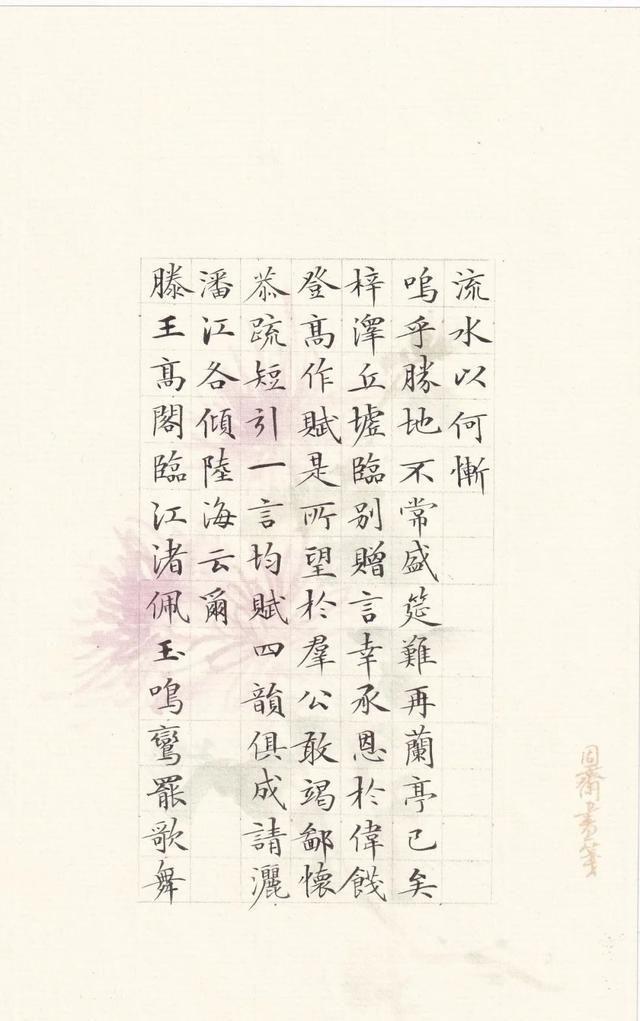 流水以何慚
嗚乎勝地不常盛筵難再蘭亭已矣
梓澤丘墟臨別贈言幸承恩於偉餞
登高作賦是所望於羣公敢竭鄙懷
恭疏短引一言均賦四韻俱成請灑
潘江各傾陸海云爾
滕王高閣臨江渚佩玉鳴鸞罷歌舞
齋書箋